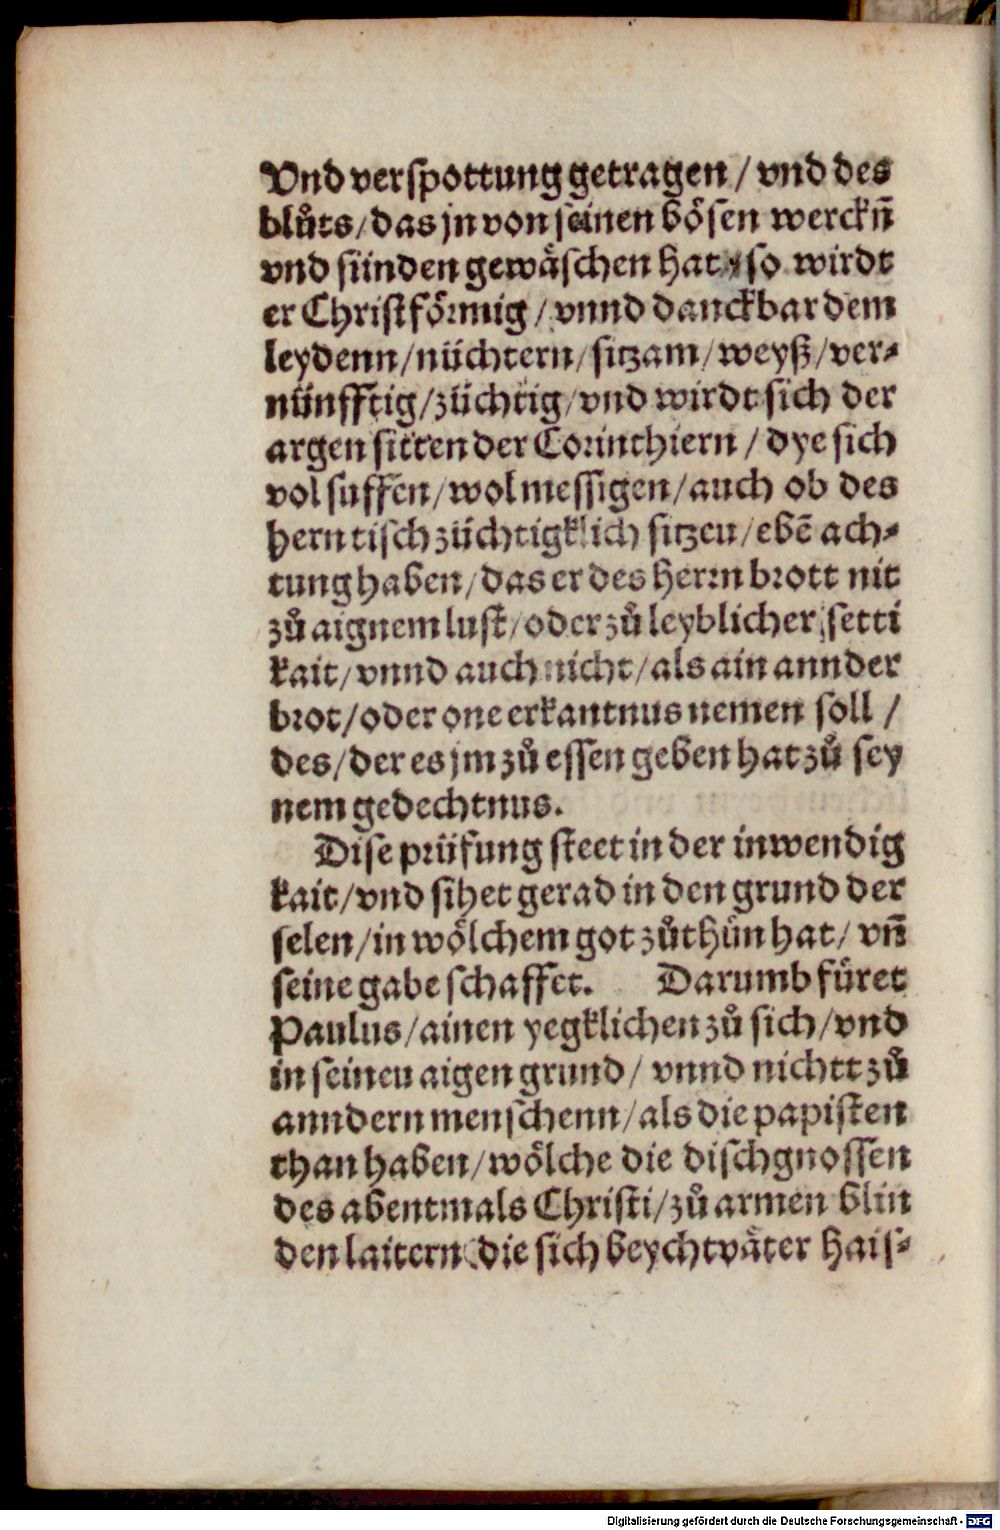 Vnd verspottung getragen / vnd des
blůts / das jn von seinen bösen werckñ
vnd sünden gewäschen hat / so wirdt
er Christförmig / vnnd danckbar dem
leydenn / nüchtern / sitzam / weyß / ver⸗
nünfftig / züchtig / vnd wirdt sich der
argen sitten der Corinthiern / dye sich
vol suffen / wol messigen / auch ob des
hern tisch züchtigklich sitzen / ebē ach⸗
tung haben / das er des herrn brott nit
zů aignem lust / oder zů leyblicher setti
kait / vnnd auch nicht / als ain annder
brot / oder one erkantnus nemen soll /
des / der es jm zů essen geben hat zů sey
nem gedechtnus.
Dise prüfung steet in der inwendig
kait / vnd sihet gerad in den grund der
selen / in wölchem got zůthůn hat / vñ
seine gabe schaffet. Darumb füret
Paulus / ainen yegklichen zů sich / vnd
in seinen aigen grund / vnnd nichtt zů
anndern menschenn / als die papisten
than haben / wölche die dischgnossen
des abentmals Christi / zů armen blin
den laitern die sich beychtväter hais⸗
Digitalisierung gefördert durch die Deutsche Forschungsgemeinschaft - DFG